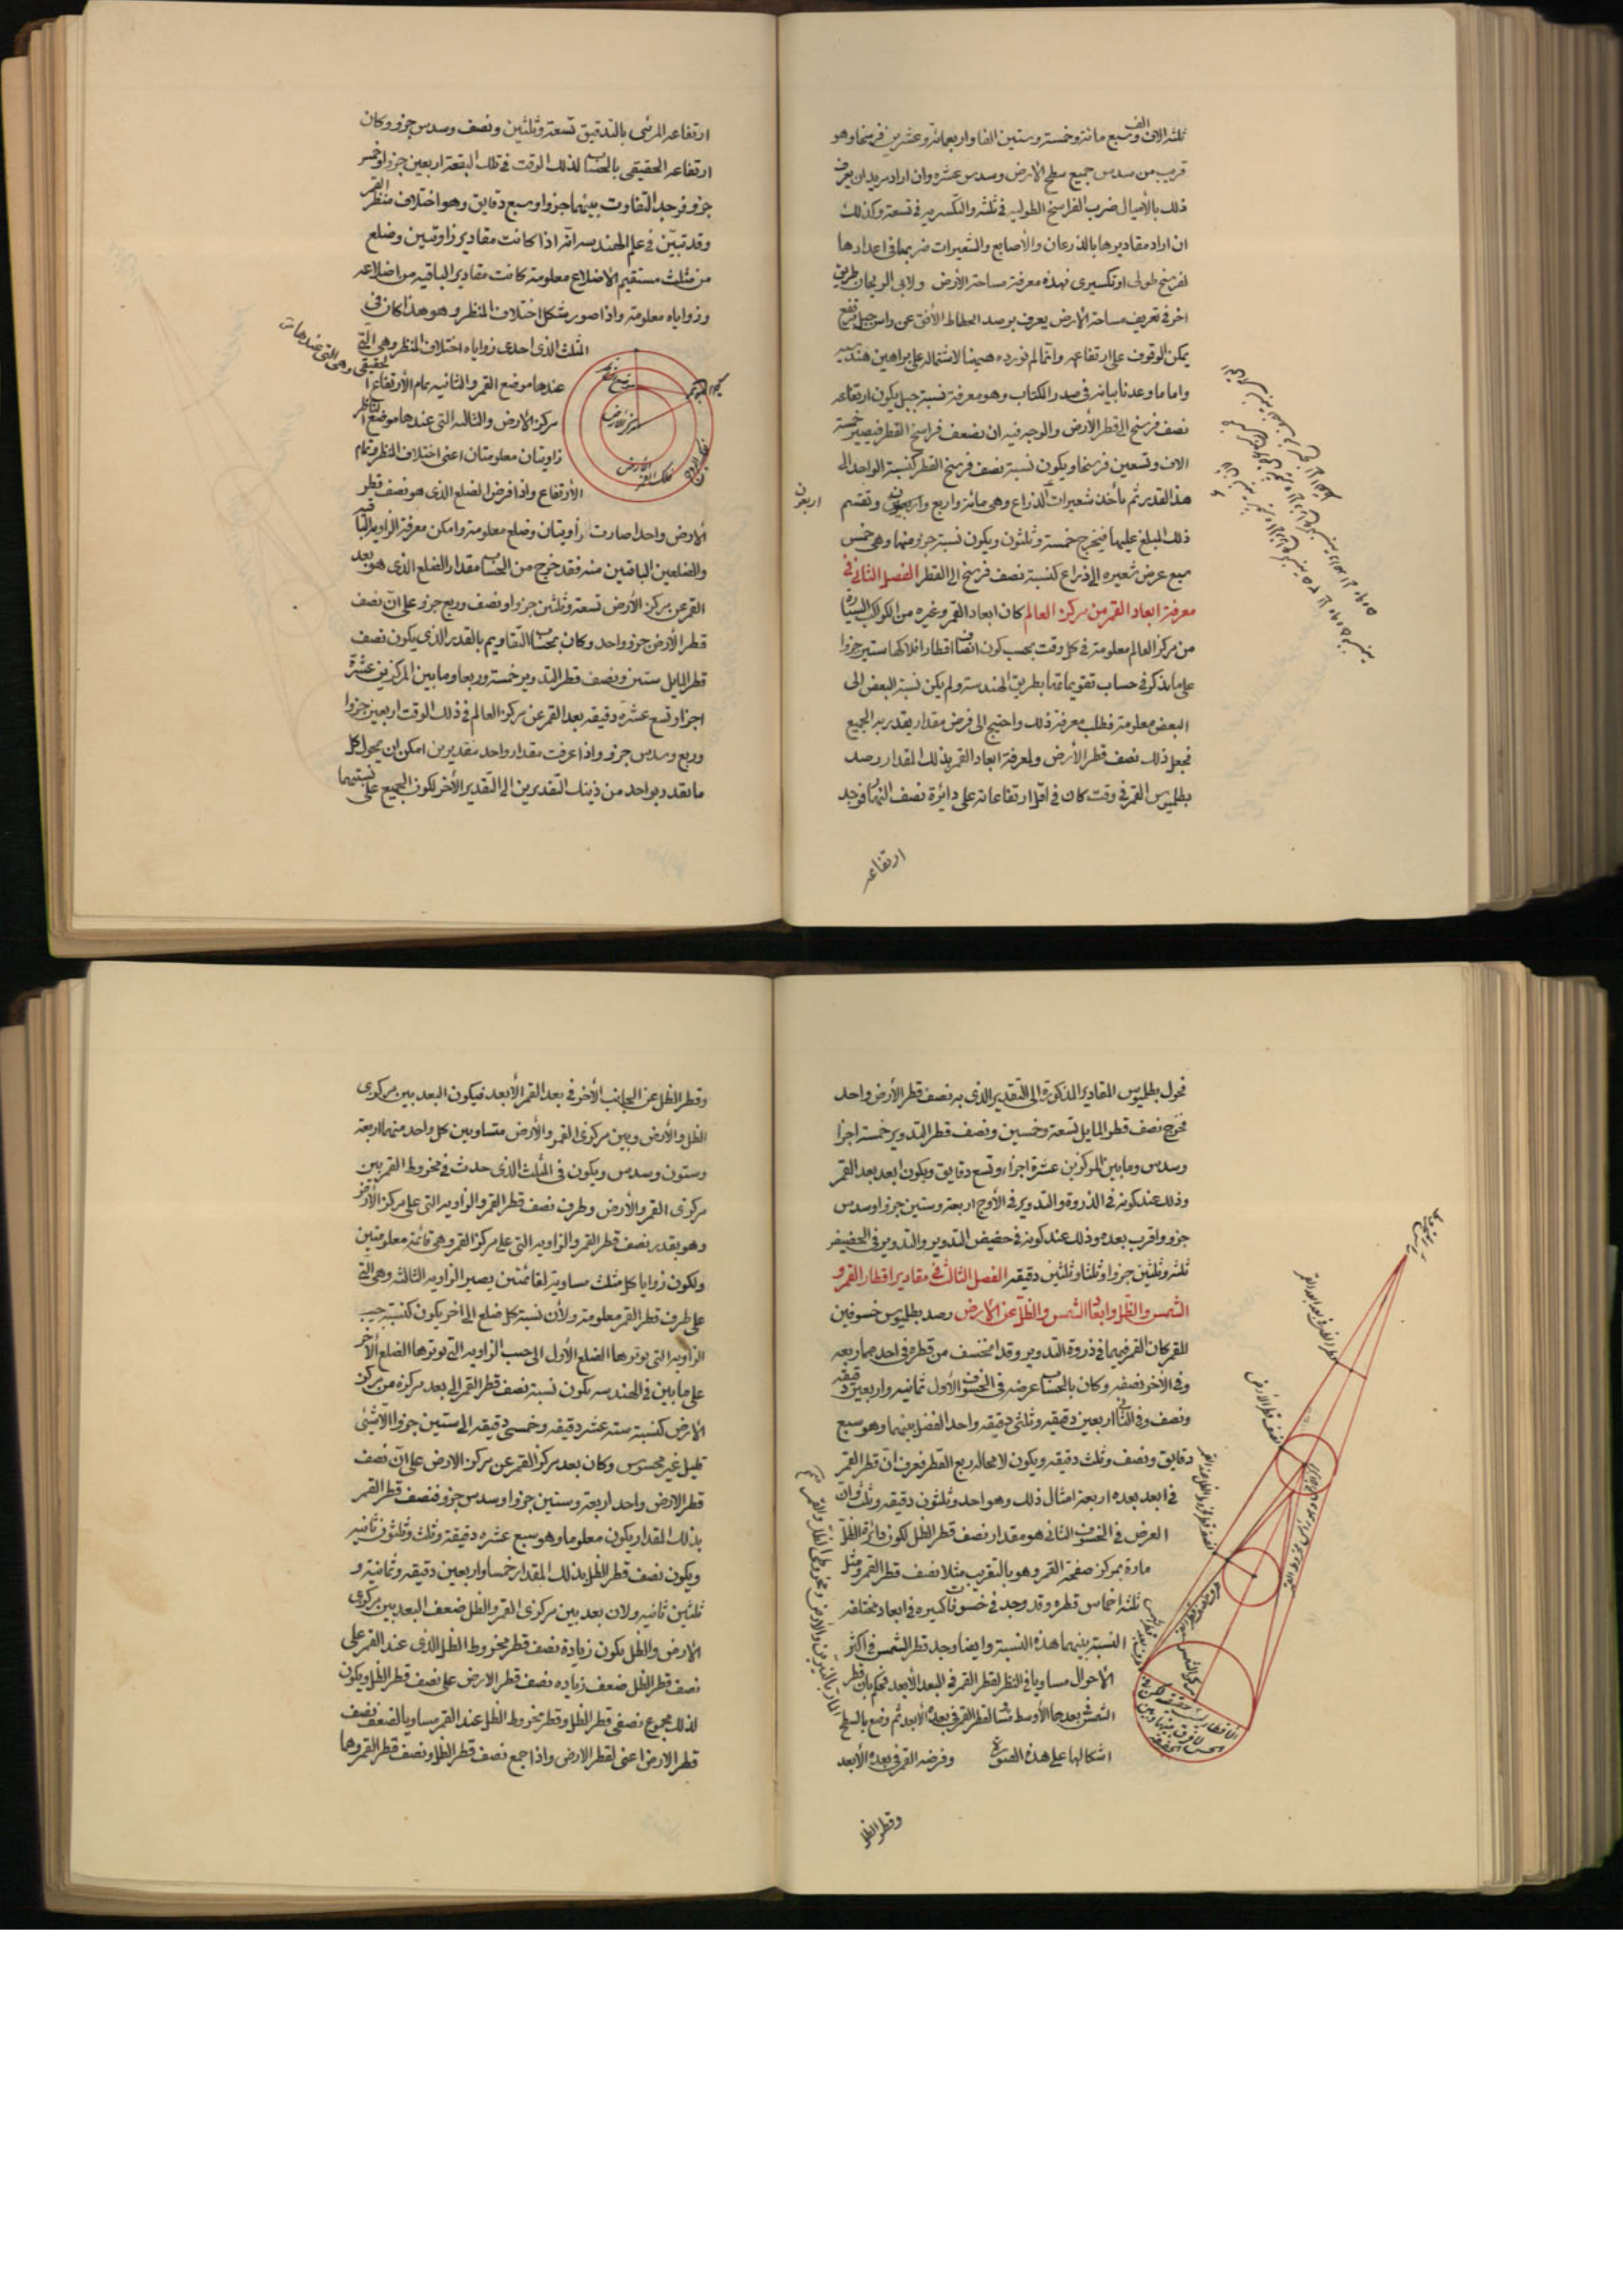 ثلثه الاف الف وسبع مائة وخمسة وستين الفا واربعمائة وعشرين فرسخا وهو
قريب من سدس جميع سطح الأرض وسدس عشره وان اراد مريد ان يعرف
ذلك بالأميال ضرب الفراسخ الطولية فى ثلثه والتكسيريه فى تسعة وكذلك
ان اراد مقاديرها بالذرعان والأصابع والشعيرات ضربها فى اعدادها
لفرسخ طولى او تكسيرى فهذه معرفة مساحة الأرض ولابى الريحان طريق
اخر فى تعريف مساحة الارض يعرف برصد انحطاط الأفق عن راس جبل مرتفع
يمكن الوقوف على ارتفاعه وانما لم نورده هيهنا لاشتماله على براهين هندسيه
واما ما وعدنا بيانه فى صدر الكتاب وهو معرفة نسبة جبل يكون ارتفاعه
نصف فرسخ الى قطر الأرض والوجه فيه ان يضعف فراسخ القطر فيصير خمسة
الاف وتسعين فرسخا ويكون نسبة نصف فرسخ القطر كنسبة الواحد الى
هذا القدر ثم يأخذ شعيرات الذراع وهى مائة واربع واربعون ونقسم
اربعون
ذلك المبلغ عليها فيخرج خمسة وثلثون ويكون نسبة جزء منها وهى خمس
سبع عرض شعيره الى ذراع كنسبة نصف فرسخ الى القطر الفصل الثانى فى
معرفة ابعاد القمر من مركز العالم كان ابعاد القمر وغيره من الكواكب السيارة
من مركز العالم معلومة فى كل وقت بحسب كون انصاف اقطار افلاكها ستين جزوا
على ما يذكر فى حساب تقويماتها بطريق الهندسة ولم يكن نسبة البعض الى
البعض معلومة فطلب معرفة ذلك واحتيج الى فرض مقدار يقدر به الجميع
فجعل ذلك نصف قطر الأرض ولمعرفة ابعاد القمر بذلك المقدار رصد
بطلميوس القمر فى وقت كان فى اقل ارتفاعاته على دائرة نصف النهار فوجد
ارتفاعه
ارتفاعه المرئى بالتدقيق تسعة وثلثين ونصف وسدس جزو وكان
ارتفاعه الحقيقى بالحساب لذلك الوقت فى تلك البقعة اربعين جزوا وخمس
جزو فوجد التفاوت بينهما جزوا وسبع دقايق وهو اختلاف منظر القمر
وقد تبين فى علم الهندسه انه اذا كانت مقادير زاويتين وضلع
من مثلث مستقيم الاضلاع معلومة كانت مقادير الباقيه من اضلاعه
وزواياه معلومة واذا صور شكل اختلاف المنظر وهو هذا كان فى
المثلث الذى احدى زواياه اختلاف المنظر وهى التى
عندها موضع القمر والثانيه تمام الأرتفاع الحقيقى وهى التى عندها
مركز الأرض والثالثه التى عندها موضع الناظر
زاويتان معلومتان اعنى اختلاف المنظر وتمام
الأرتفاع واذا فرض الضلع الذى هو نصف قطر
الارض واحدا صارت زاويتان وضلع معلومة وامكن معرفة الزاوية الباقيه
والضلعين الباقيين منه فقد خرج من الحساب مقدار الضلع الذى هو بعد
القمر عن مركز الأرض تسعة وثلثين جزوا ونصف وربع جزو على ان نصف
قطر الارض جزو واحد وكان بحساب التقاويم بالقدر الذى يكون نصف
قطر المايل ستين ونصف قطر التدوير خمسة وربعا وما بين المركزين عشرة
اجزاو تسع عشره دقيقه بعد القمر عن مركز العالم فى ذلك الوقت اربعين جزوا
وربع وسدس جزو واذا عرفت مقدار واحد بتقديرين امكن ان يحول كل
ما يقدر بواحد من ذينك التقديرين الى التقدير الأخر لكون الجميع على نسبتهما
مركز الأرض
فحول بطلميوس المقادير المذكورة الى التقدير الذى به نصف قطر الأرض واحد
فخرج نصف قطر المايل تسعة وخمسين ونصف قطر التدوير خمسة اجزا
وسدس وما بين المركزين عشرة اجزاء وتسع دقايق ويكون ابعد بعد القمر
وذلك عند كونه فى الذروة والتدوير فى الأوج اربعة وستين جزوا وسدس
جزو واقرب بعده وذلك عند كونه فى حضيض التدوير والتدوير فى الحضيض
ثلثه وثلثين جزوا وثلثا وثلثين دقيقه الفصل الثالث فى مقادير اقطار القمر و
الشمس والظل وابعاد الشمس والظل عن الارض رصد بطلميوس خسوفين
للقمر كان القمر فيهما فى ذروة التدوير وقد انخسف من قطره فى احدهما ربعه
وفى الاخر نصفه وكان بالحساب عرضه فى الخسوف الأول ثمانيه واربعين دقيقه
ونصف وفى الثانى اربعين دقيقه وثلثى دقيقه واحد الفضل بينهما وهو سبع
دقايق ونصف وثلث دقيقه ويكون لا محاله ربع القطر فعرف ان قطر القمر
فى ابعد بعده اربعة امثال ذلك وهو احد وثلثون دقيقه وثلث وان
العرض فى الخسوف الثانى هو مقدار نصف قطر الظل لكون دائرة الظل
مارة بمركز صفحة القمر وهو بالتقريب مثلا نصف قطر القمر ومثل
ثلثه اخماس قطره وقد وجد فى خسوفات كثيره فى ابعاد مختلفه
النسبة بينهما هذه النسبة وايضا وجد قطر الشمس فى اكثر
الأحوال مساويا فى النظر لقطر القمر فى البعد الأبعد فحكم بان قطر
الشمس فى بعدها الأوسط مساو لقطر القمر فى بعده الأبعد ثم وضع بالسطح
اشكالها على هذه الصورة وفرضه القمر فى بعده الأبعد
وقطر الظل
نصف قطر الأرض
وقطر الظل عن الجانب الأخر فى بعد القمر الأبعد فيكون البعد بين مركزى
الظل والأرض وبين مركزى القمر والأرض متساويين كل واحد منهما اربعة
وستون وسدس ويكون فى المثلث الذى حدث فى مخروط القمر بين
مركزى القمر والأرض وطرف نصف قطر القمر والزاويه التى على مركز الأرض
وهو بقدر نصف قطر القمر والزاويه التى على مركز القمر وهى قائمة معلومتين
ولكون زوايا كل مثلث مساوية لقائمتين يصير الزاويه الثالثه وهى التى
على طرف قطر القمر معلومة ولأن نسبة كل ضلع الى اخر يكون كنسبة جيب
الزاويه التى يوترها الضلع الأول الى جيب الزاويه التى يوترها الضلع الأخر
على ما بين فى الهندسه يكون نسبة نصف قطر القمر الى بعد مركزه من مركز
الأرض كنسبة ستة عشر دقيقه وخمسى دقيقه الى ستين جزوا الا شئى
قليل غير محسوس وكان بعد مركز القمر عن مركز الارض على ان نصف
قطر الارض واحد اربعة وستين جزوا وسدس جزو فنصف قطر القمر
بذلك المقدار يكون معلوما وهو سبع عشره دقيقة وثلث وثلثون ثانيه
ويكون نصف قطر الظل بذلك المقدار خمسا واربعين دقيقه وثمانية و
ثلثين ثانيه ولان بعد بين مركزى القمر والظل ضعف البعد بين مركزى
الارض والظل يكون زيادة نصف قطر مخروط الظل الذى عند القمر على
نصف قطر الظل ضعف زياده نصف قطر الارض على نصف قطر الظل ويكون
لذلك مجموع نصفى قطر الظل وقطر مخروط الظل عند القمر مساويا لضعف نصف
قطر الارض اعنى لقطر الارض واذا جمع نصف قطر الظل ونصف قطر القمر وهما